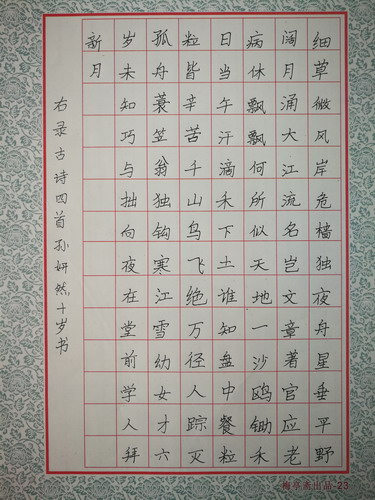 细草微风岸危樯独夜舟星垂平野
阔月涌大江流名岂文章著官应老
病休飘飘何所似天地一沙鸥锄禾
日当午汗滴禾下土谁知盘中餐粒
粒皆辛苦千山鸟飞绝万径人踪灭
孤舟蓑笠翁独钓寒江雪幼女才六
岁未知巧与拙向夜在堂前学人拜
新月
右录古诗四首孙妍然十岁书
出品-23